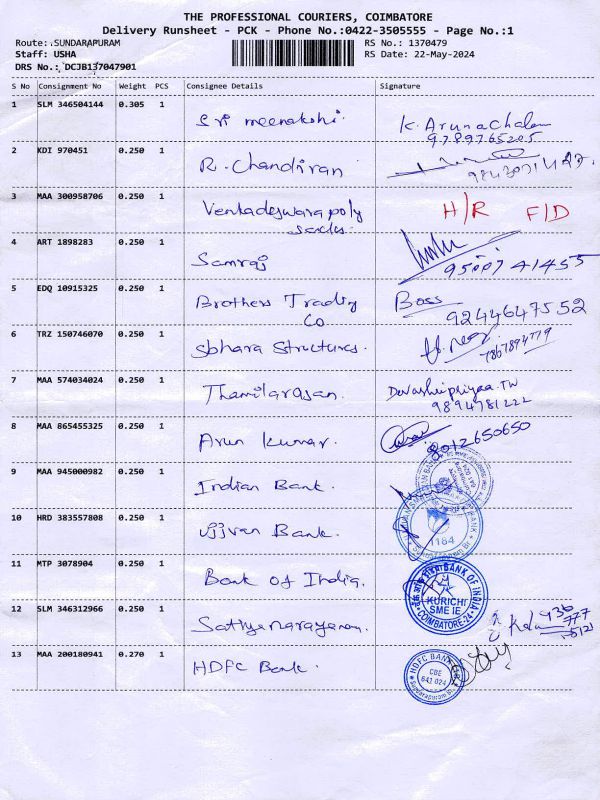 THE PROFESSIONAL COURIERS, COIMBATORE
Delivery Runsheet - PCK - Phone No.:0422-3505555 - Page No.:1
Route: .SUNDARAPURAM
RS No.: 1370479
Staff: USHA
RS Date: 22-May-2024
DRS No.: DCJB137047901
S No Consignment No Weight PCS Consignee Details Signature
1 SLM 346504144 0.305 1 Sri meenakshi. K. Arunachalam
9789765205
2 KDI 970451 0.250 1 R. Chandiran
3 MAA 300958706 0.250 1 Venkadeswara poly H/R F/D
4 ART 1898283 0.250 1 Samraj
9500741455
5 EDQ 10915325 0.250 1 Brothers Trading Boss
Co 9244647552
6 TRZ 150746070 0.250 1 Sbhara Structures.
7867894779
7 MAA 574034024 0.250 1 Thamilarasan. Devashripriyaa.TW
9894781222
8 MAA 865455325 0.250 1 Arun Kumar.
8012650650
9 MAA 945000982 0.250 1 Indian Bank.
10 HRD 383557808 0.250 1 Ujjvan Bank.
1184
11 MTP 3078904 0.250 1 Bank of India. BANK OF INDIA
KURICHI
SME IE
COIMBATORE-24
12 SLM 346312966 0.250 1 Sathyanarayanan.
13 MAA 200180941 0.270 1 HDFC Bank. HDFC BANK
CBE
641 024
Sundarapuram Br.